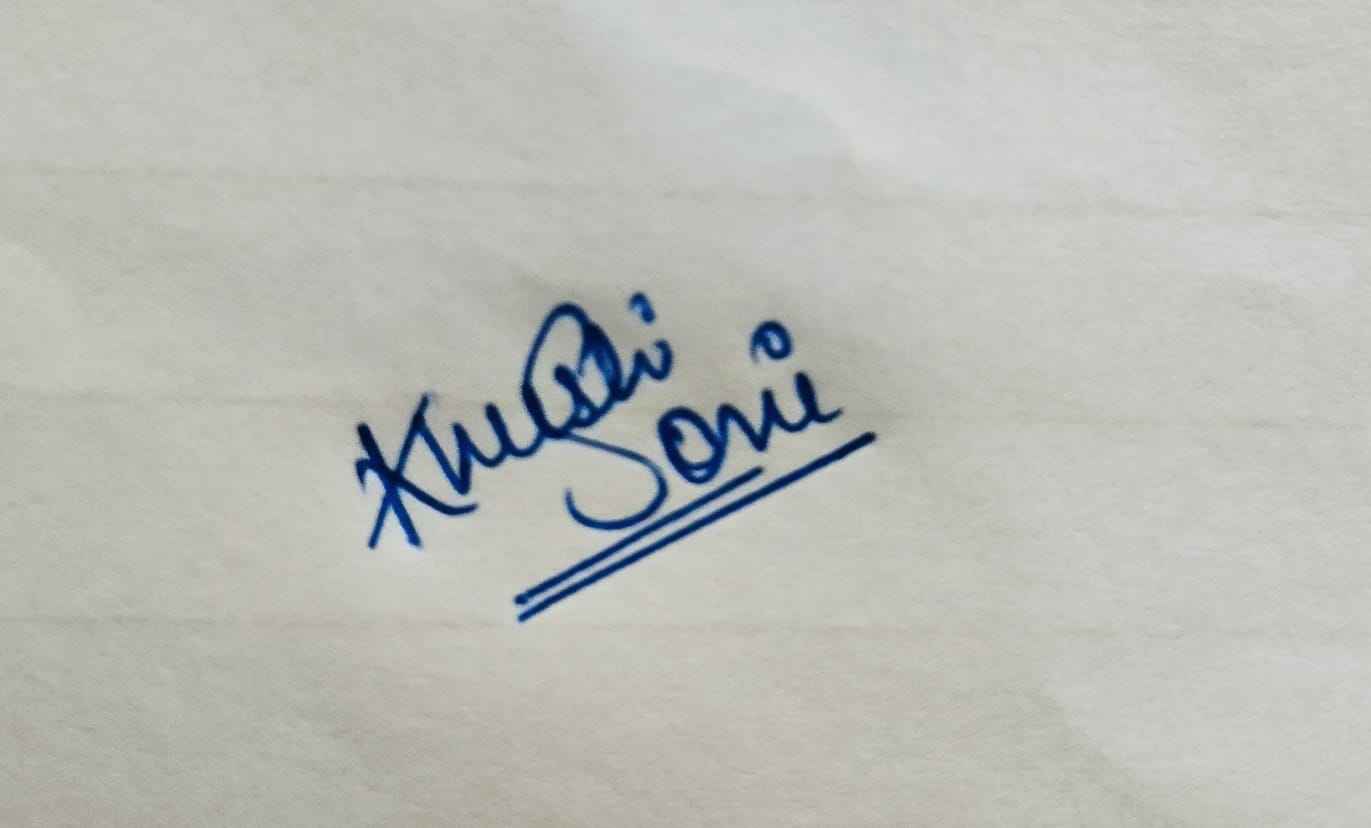 Khushi
Soni